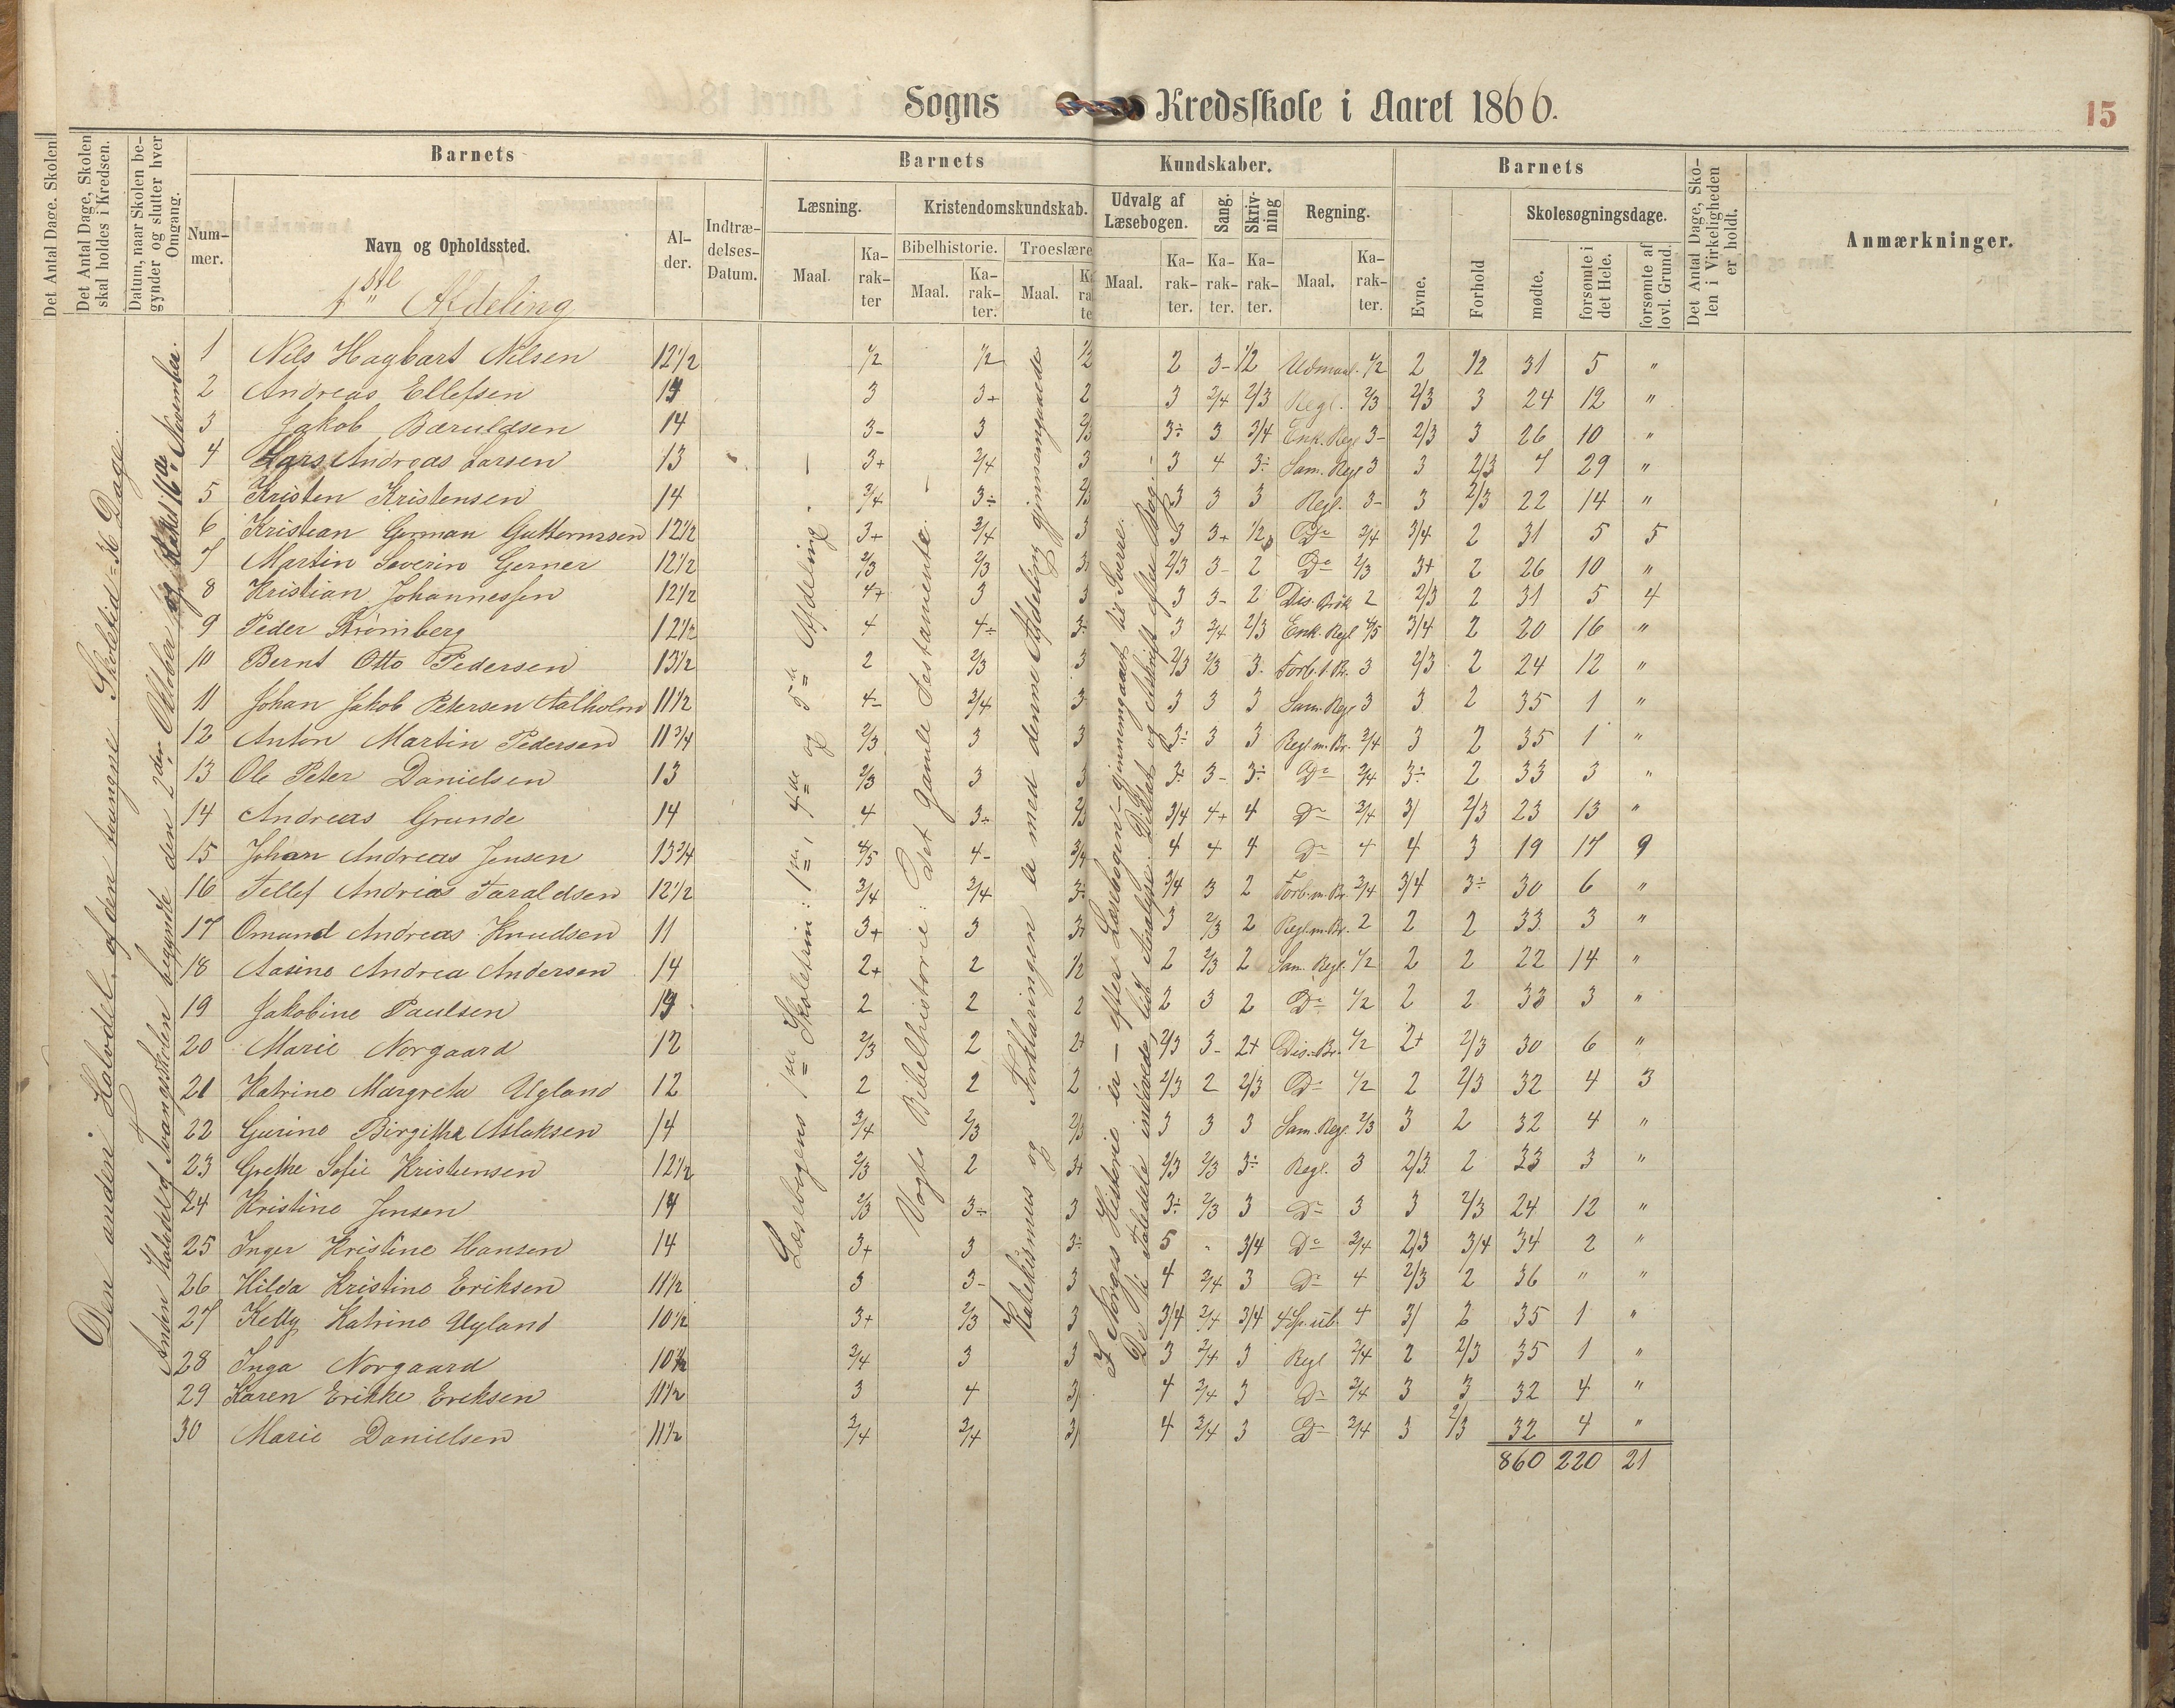 Sogns Kredsskole i Aaret 1866.
15
Det Antal Dage. Skolen
Det Antal Dage, Skolen skal holdes i Kredsen.
Datum, naar Skolen begynder og slutter hver Omgang.
Barnets
Barnets Kundskaber.
Barnets
Det Antal Dage, Skolen i Virkeligheden er holdt.
Anmærkninger.
Nummer.
Navn og Opholdssted.
Alder.
Indtrædelses-Datum.
Læsning.
Kristendomskundskab.
Udvalg af Læsebogen.
Sang.
Skrivning
Regning.
Evne.
Forhold
Skolesøgningsdage.
Bibelhistorie.
Troeslære
Maal.
Karakter
Maal.
Karakter.
Maal.
Maal.
Karakter.
Karakter.
Karakter.
Maal.
Karakter.
mødte.
forsømte i det Hele.
forsømte af lovl. Grund.
1ste Afdeling
Den anden Halvdel af den tvungne Skoletid = 36 Dage.
Anden Halvdel af Tvangsskolen begyndte den 2den Oktober og sluttet 16de November.
Læsebogens 1ste Skoletrin: 1ste, 4de og 5te Afdeling.
Vogts Bibelhistorie: Det gamle Testamente.
Katekismus og Forklaringen er med denne Afdeling gjennemgaaede
I Norges Historie er – efter Læsebogen – gjennemgaaet til Sverre.
De Ni Taledele indøvede, lidt Analyse. Diktat og Afskrift efter Bog.
1 Nils Hagbart Nilsen 12 1/2 1/2 1/2 1/2 2 3- 1/2 Udmaal. 1/2 2 1/2 31 5 "
2 Andreas Ellefsen 14 3 3+ 2 3 3/4 2/3 Regl. 2/3 2/3 3 24 12 "
3 Jakob Baruldsen 14 3- 3 2/3 3÷ 3 3/4 Enk. Regl 3- 2/3 3 26 10 "
4 Lars Andreas Larsen 13 3+ 3/4 3 3 4 3÷ Sam. Regl 3 3 2/3 7 29 "
5 Kristen Kristensen 14 3/4 3÷ 2/3 3 3 3 Regl. 3- 3 2/3 22 14 "
6 Kristian German Guttormsen 12 1/2 3+ 3/4 3 3 3+ 1/2 Do 3/4 3/4 2 31 5 5
7 Martin Severin Gerner 12 1/2 2/3 2/3 3+ 2/3 3- 2 Do 2/3 3+ 2 26 10 "
8 Kristian Johannessen 12 1/2 4+ 3 3 3 3- 2 Dis. Brøk 2 2/3 2 31 5 4
9 Peder Strömberg 12 1/2 4 4÷ 3÷ 3 3/4 2/3 Enk. Regl 4/5 3/4 2 20 16 "
10 Bernt Otto Pedersen 13 1/2 2 2/3 3 2/3 2/3 3- Forb. t. Br. 3 2/3 2 24 12 "
11 Johan Jakob Petersen Aalholm 11 1/2 4- 3/4 3 3 3 3 Sam. Regl 3 3 2 35 1 "
12 Anton Martin Pedersen 11 3/4 2/3 3 3 3÷ 3 3 Regl m. Br. 3/4 3 2 35 1 "
13 Ole Peter Danielsen 13 2/3 3 3 3÷ 3- 3÷ Do 3/4 3÷ 2 33 3 "
14 Andreas Grunde 14 4 3÷ 2/3 3/4 4+ 4 Do 3/4 3/ 2/3 23 13 "
15 Johan Andreas Jensen 13 3/4 4/5 4- 3/4 4 4 4 Do 4 4 3 19 17 9
16 Tellef Andrias Taraldsen 12 1/2 3/4 3/4 3÷ 3/4 3 2 Forb. m. Br. 3/4 3/4 3÷ 30 6 "
17 Omund Andreas Knudsen 11 3+ 3 3+ 3 2/3 2 Regl. m. Br. 2 2 2 33 3 "
18 Aasine Andrea Andersen 14 2+ 2 1/2 2 2/3 2 Sam. Regl. 1/2 2 2 22 14 "
19 Jakobine Paulsen 14 2 2 2 2 3 2 Do 1/2 2 2 33 3 "
20 Marie Norgaard 12 2/3 2 2+ 2/3 3- 2+ Dis. Br. 1/2 2+ 2/3 30 6 "
21 Katrine Margrete Ugland 12 2 2 2 2/3 2 2/3 Do 1/2 2 2/3 32 4 3
22 Gurine Birgithe Aslaksen 14 3/4 2/3 2/3 3 3 3 Sam. Regl. 2/3 3 2 32 4 "
23 Grethe Sofie Kristensen 12 1/2 2/3 2 3+ 2/3 2/3 3÷ Regl. 3 2/3 2 33 3 "
24 Kristine Jensen 14 2/3 3÷ 3 3÷ 2/3 3 Do 3 3 2/3 24 12 "
25 Inger Kristine Hansen 14 3+ 3 3÷ 5 - 3/4 Do 3/4 2/3 3/4 34 2 "
26 Hilda Kristine Eriksen 11 1/2 3 3- 3 4 3/4 3 Do 4 2/3 2 36 " "
27 Kelly Katrine Ugland 10 1/2 3+ 2/3 3 3/4 3/4 3/4 4 Sp. ub. 4 3/ 2 35 1 "
28 Inga Norgaard 10 1/2 3/4 3 3 3 3/4 3 Regl 3/4 2 2/3 35 1 "
29 Karen Erikke Eriksen 11 1/2 3 4 3/ 4 3/4 3 Do 3/4 3 3 32 4 "
30 Marie Danielsen 11 1/2 3/4 3/4 3/ 4 3/4 3 Do 3/4 3 2/3 32 4 "
860 220 21